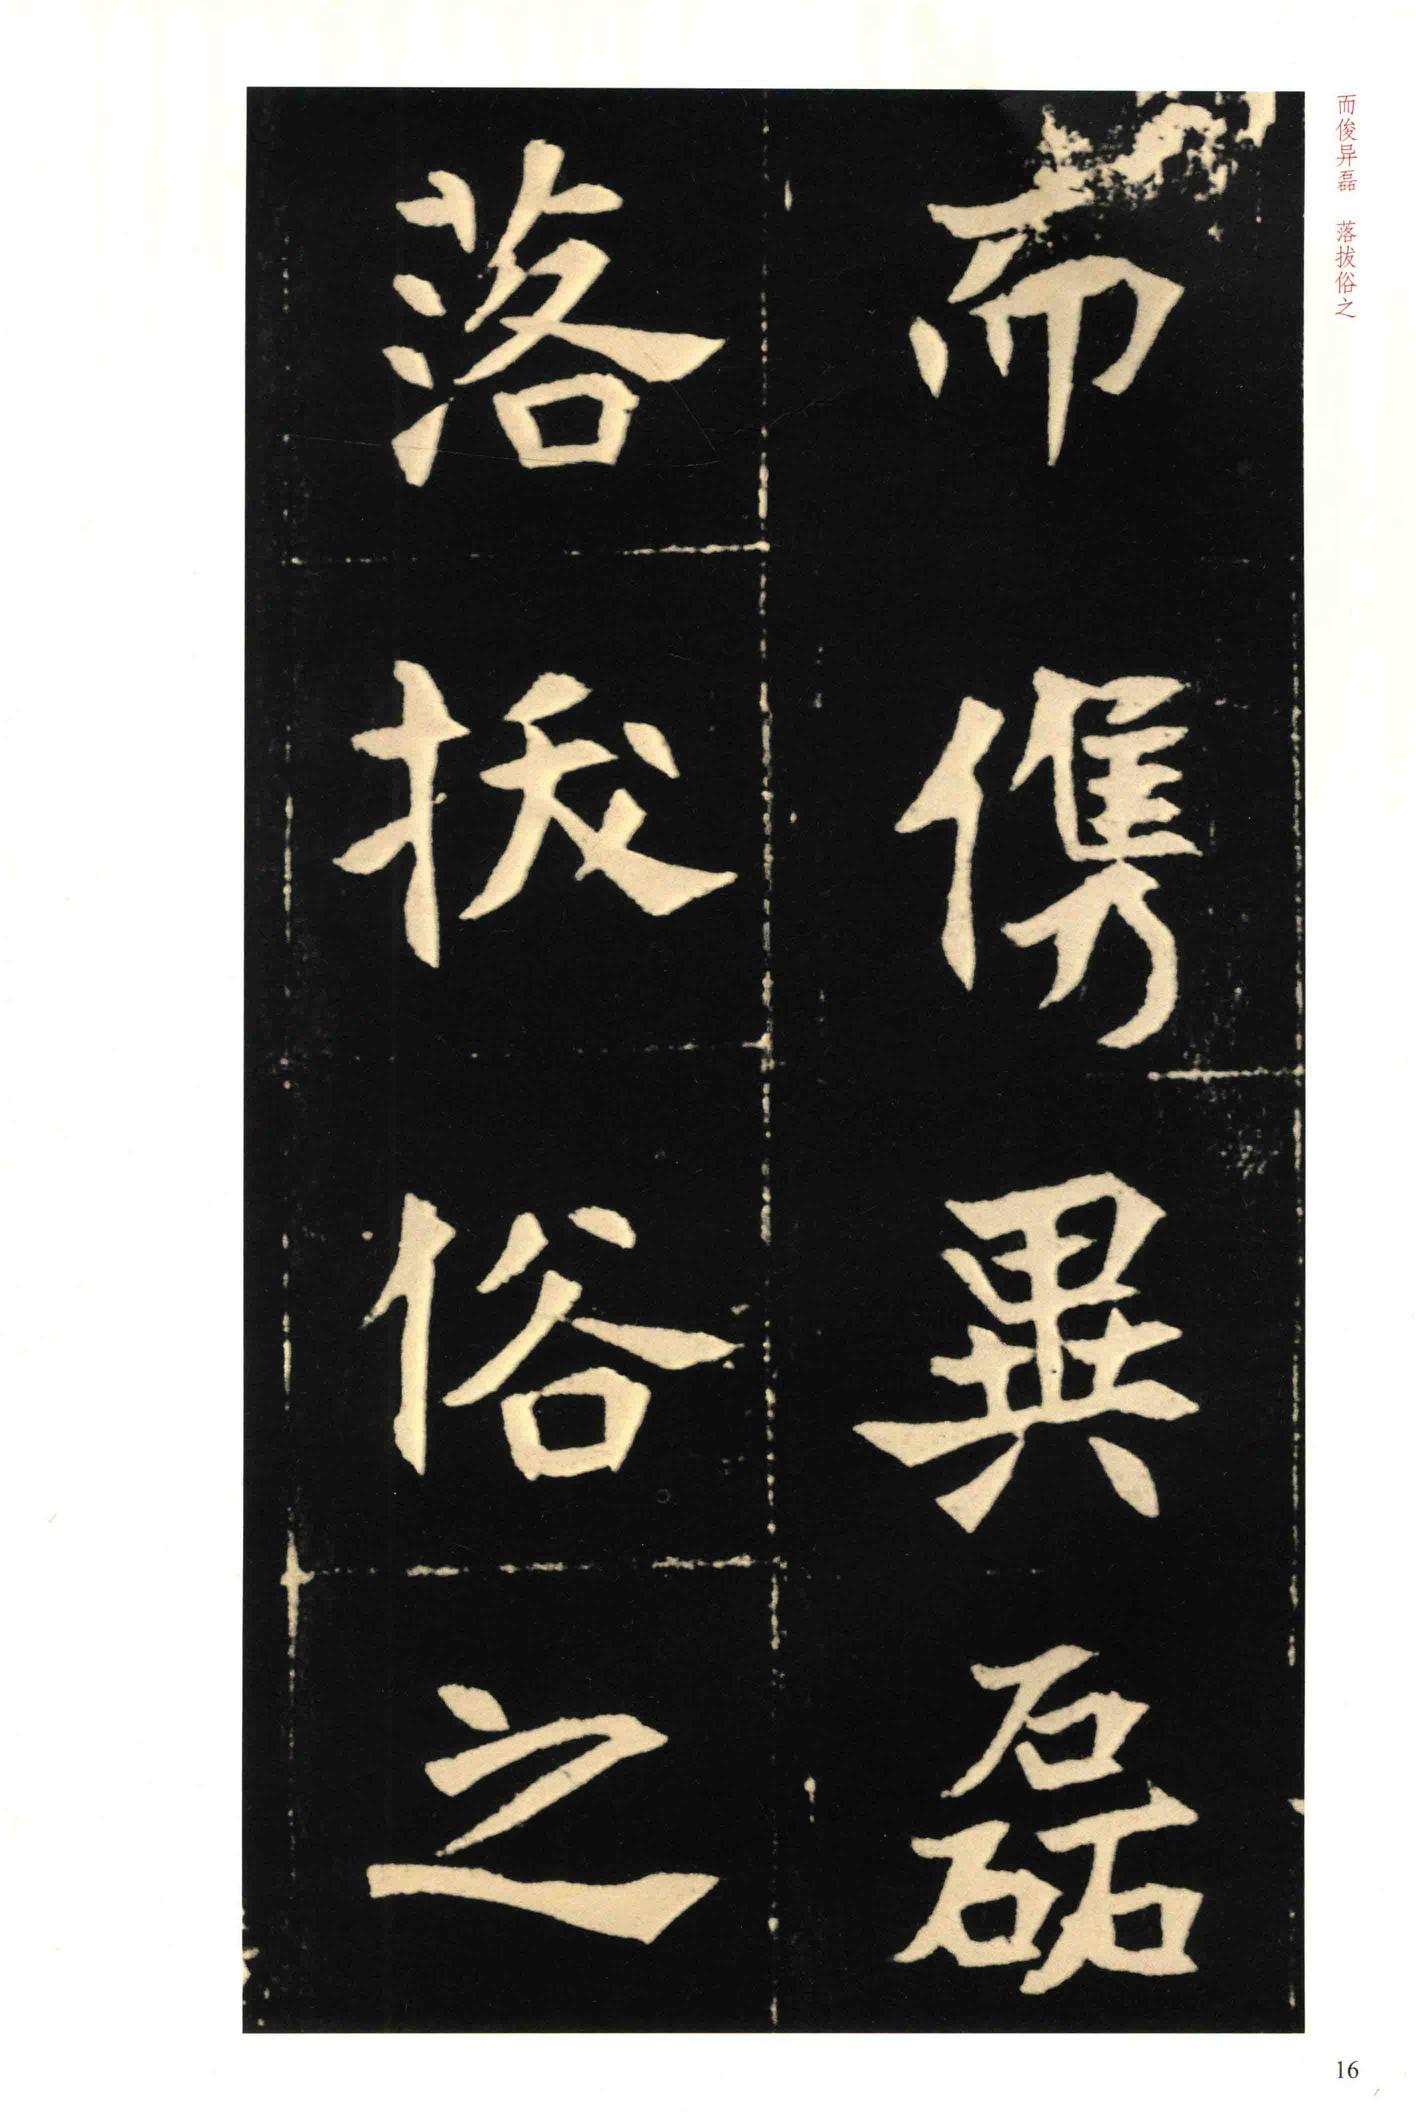 而俊异磊　落拔俗之
而儁異磊
落拔俗之
16